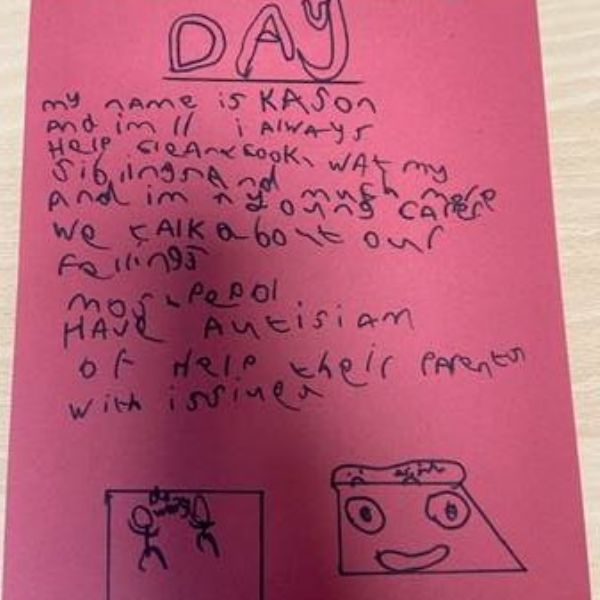 DAY
my name is KASON
And im 11 i ALWAYS
HELP cleAn cook, WAt my
Siblings And much more
And im A young carer
We tAlk about our
Fellings
most pepol
HAve Autisiam
of Help their parents
With issiues